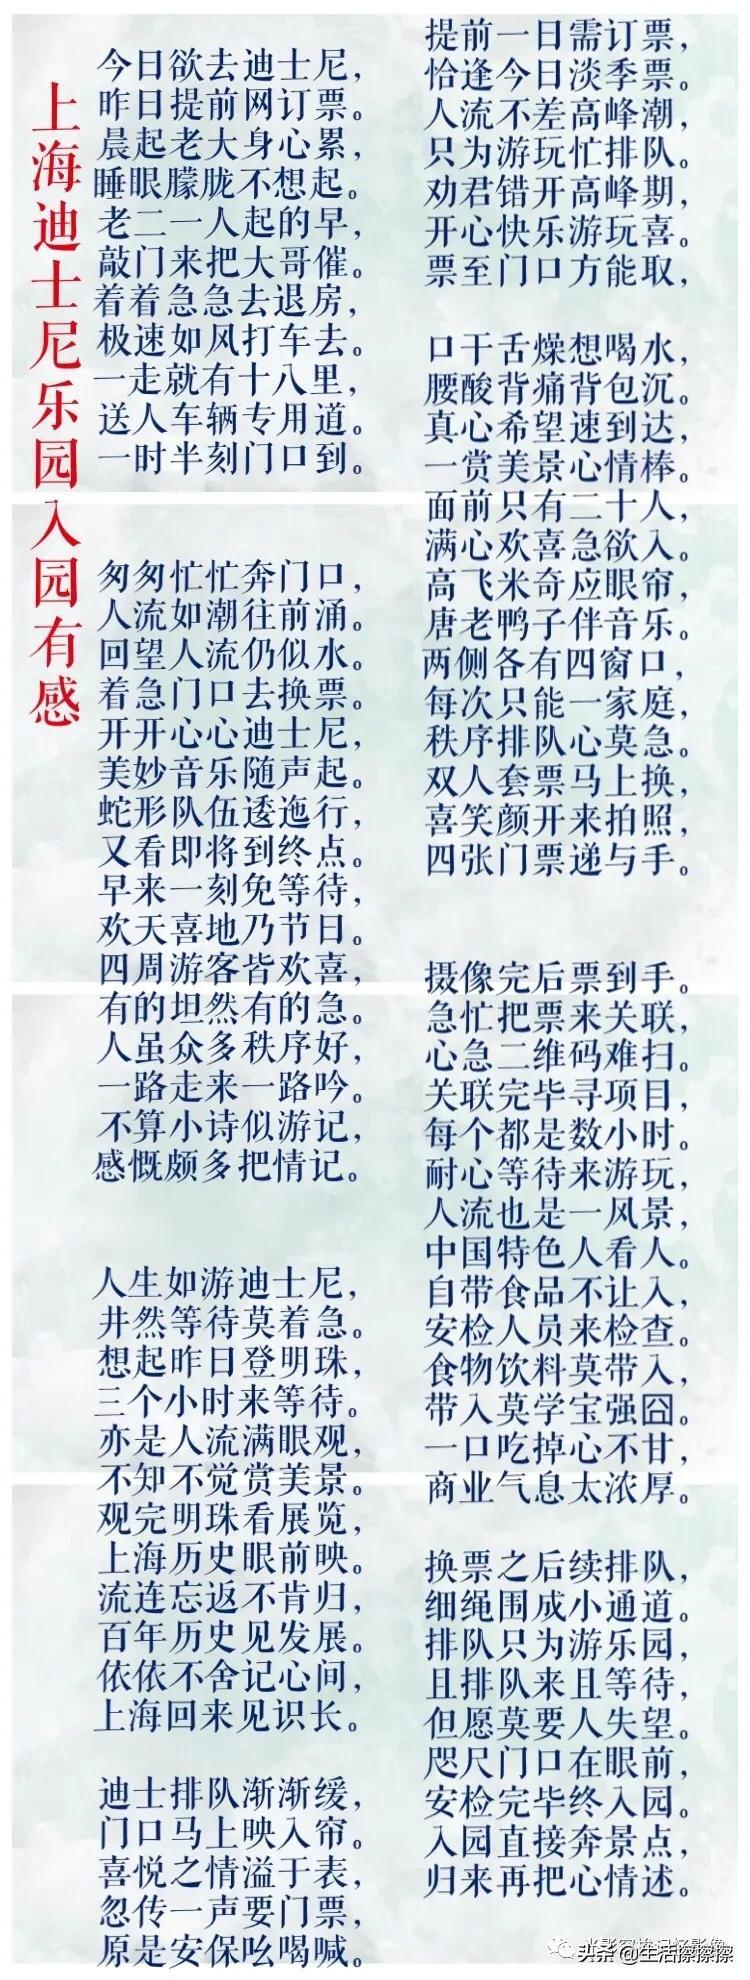 上海迪士尼乐园入园有感
今日欲去迪士尼，
昨日提前网订票。
晨起老大身心累，
睡眼朦胧不想起。
老二一人起的早，
敲门来把大哥催。
着着急急去退房，
极速如风打车去。
一走就有十八里，
送人车辆专用道。
一时半刻门口到。
匆匆忙忙奔门口，
人流如潮往前涌。
回望人流仍似水。
着急门口去换票。
开开心心迪士尼，
美妙音乐随声起。
蛇形队伍逶迤行，
又看即将到终点。
早来一刻免等待，
欢天喜地乃节日。
四周游客皆欢喜，
有的坦然有的急。
人虽众多秩序好，
一路走来一路吟。
不算小诗似游记，
感慨颇多把情记。
人生如游迪士尼，
井然等待莫着急。
想起昨日登明珠，
三个小时来等待。
亦是人流满眼观，
不知不觉赏美景。
观完明珠看展览，
上海历史眼前映。
流连忘返不肯归，
百年历史见发展。
依依不舍记心间，
上海回来见识长。
迪士排队渐渐缓，
门口马上映入帘。
喜悦之情溢于表，
忽传一声要门票，
原是安保吆喝喊。
提前一日需订票，
恰逢今日淡季票。
人流不差高峰潮，
只为游玩忙排队。
劝君错开高峰期，
开心快乐游玩喜。
票至门口方能取，
口干舌燥想喝水，
腰酸背痛背包沉。
真心希望速到达，
一赏美景心情棒。
面前只有二十人，
满心欢喜急欲入。
高飞米奇应眼帘，
唐老鸭子伴音乐。
两侧各有四窗口，
每次只能一家庭，
秩序排队心莫急。
双人套票马上换，
喜笑颜开来拍照，
四张门票递与手。
摄像完后票到手。
急忙把票来关联，
心急二维码难扫。
关联完毕寻项目，
每个都是数小时。
耐心等待来游玩，
人流也是一风景，
中国特色人看人。
自带食品不让入，
安检人员来检查。
食物饮料莫带入，
带入莫学宝强囧。
一口吃掉心不甘，
商业气息太浓厚。
换票之后续排队，
细绳围成小通道。
排队只为游乐园，
且排队来且等待，
但愿莫要人失望。
咫尺门口在眼前，
安检完毕终入园。
入园直接奔景点，
归来再把心情述。
头条@生活擦擦擦